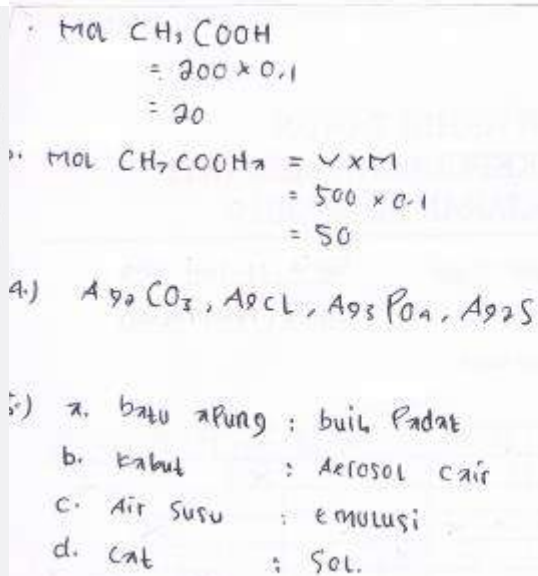 . Mol CH3COOH
= 200 x 0,1
= 20
. Mol CH3COONa = V x M
= 500 x 0.1
= 50
4.) Ag2CO3, AgCl, Ag3PO4, Ag2S
.) a. batu apung : buih Padat
b. kabut : Aerosol cair
c. Air susu : emulusi
d. cat : Sol.